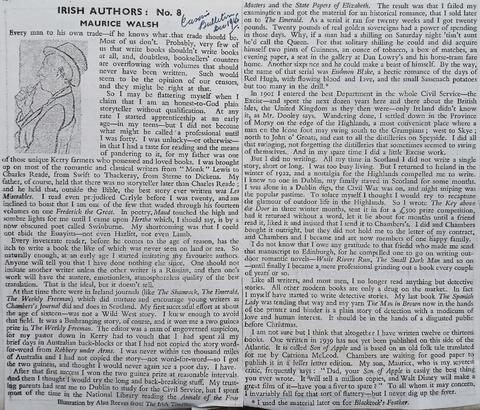 IRISH AUTHORS: No. 8.
MAURICE WALSH
Every man to his own trade—if he knows what that trade should be.
Most of us don't. Probably, very few of
us that write books shouldn't write books
at all, and, doubtless, booksellers' counters
are overflowing with volumes that should
never have been written. Such would
seem to be the opinion of our censors,
and they might be right at that.
So I may be flattering myself when I
claim that I am an honest-to-God plain
storyteller without qualification. At any
rate I started apprenticeship at an early
age—in my teens—but I did not become
what might be called a professional until
I was forty. I was unlucky—or otherwise—
in that I had a taste for reading and the means
of pandering to it, for my father was one
of those unique Kerry farmers who pondered and loved books. I was brought
up on most of the romantic and classical writers from "Monk" Lewis to
Charles Reade, from Swift to Thackeray, from Sterne to Dickens. My
father, of course, held that there was no storyteller later than Charles Reade;
and he held that, outside the Bible, the best story ever written was Les
Miserables. I read even prejudiced Carlyle before I was twenty, and am
inclined to boast that I am one of the few that waded through his fourteen
volumes on Frederick the Great. In poetry, Maud touched the high and
sombre lights for me until I came upon Hertha which, I should say, is by a
now obscured poet called Swinburne. My shortcoming was that I could
not abide the Essayists—not even Hazlitt, nor even Lamb.
Every inveterate reader, before he comes to the age of reason, has the
itch to write a book the like of which was never seen on land or sea. So
naturally enough, at an early age I started imitating my favourite authors.
Anyone will tell you that I have done nothing else since. One should not
imitate another writer unless the other writer is a Russian, and then one's
work will have the austere, emotionless, atmosphereless quality of the best
translation. That is the ideal, but it doesn't sell.
At that time there were in Ireland journals (like The Shamrock, The Emerald,
The Weekly Freeman) which did nurture and encourage young writers as
Chambers's Journal did and does in Scotland. My first successful effort at about the
age of sixteen—was not a Wild West story. I knew enough to avoid
that field. It was a Bushranging story, of course, and it won me a two guinea
prize in The Weekly Freeman. The editor was a man of ungoverned suspicion,
for my pastor down in Kerry had to vouch that I had spent all my
brief days in Australian back-blocks or that I had not copied the story word-
for-word from Robbery under Arms. I was never within ten thousand miles
of Australia and I had not copied the story—not word-for-word—so I got
the two guineas, and thought I would never again see a poor day. I have.
After that first success I won the two guinea prize at reasonable intervals.
And then I thought I would try the long and back-breaking stuff. My trust-
ing parents had sent me to Dublin to study for the Civil Service, but I spent
most of the time in the National Library reading the Annals of the Four
Illustration by Alan Reeves from The Irish Times
Masters and the State Papers of Elizabeth. The result was that I did my
examination and got the material for an historical romance, that I sold later
on to The Emerald. As a serial it ran for twenty weeks and I got twenty
pounds. Twenty pounds of real golden sovereigns had a power of spending
in those days. Why, if a man had a shilling on Saturday night 'tisn't aunt
he'd call the Queen. For that solitary shilling he could and did acquire
himself two pints of Guinness, an ounce of tobacco, a box of matches, an
evening paper, a seat in the gallery at Dan Lowry's and his horse-tram fare
home. Another sixpence and he could make a beast of himself. By the way,
the name of that serial was Eudmon Blake, a hectic romance of the days of
Red Hugh, with flowing blood and Love, and the small Sassenach potatoe
but too many in the drill.*
In 1901 I entered the best Department in the whole Civil Service—the
Excise—and spent the next dozen years here and there about the British
Isles, the United Kingdom as they then were—only Ireland didn't know
it, as Mr. Dooley says. Wandering done, I settled down in the Province
of Moray on the edge of the Highlands, a most convenient place where a
man on the loose foot may swing south to the Grampians; west to Skye;
north to John o' Groats, and east to all the distilleries on Speyside. I did all
that swinging, not forgetting the distilleries that sometimes seemed to swing
of themselves. And in my spare time I did a little Excise work.
But I did no writing. All my time in Scotland I did not write a single
story, short or long. I was too busy living. But I returned to Ireland in the
winter of 1922, and a nostalgia for the Highlands compelled me to write.
I knew no one in Dublin, my family stayed in Scotland for some months.
I was alone in a Dublin digs, the Civil War was on, and night sniping was
the popular pastime. To solace myself I thought I would try to recapture
the glamour of outdoor life in the Highlands. So I wrote The Key above
the Door in three winter months, sent it in for a £500 prize competition,
had it returned without a word, let it lie about for months until a friend
read it, liked it and insisted that I send it to Chambers's. I did and Chambers
bought it outright, but they did not hold me to the letter of my contract,
and Chambers and I became and are now members of one happy family.
I do not know that I owe any gratitude to that friend who made me send
that manuscript to Edinburgh, for he compelled me to go on writing out-
door romantic novels—While Rivers Run, The Small Dark Man and so on
—until finally I became a mere professional grinding out a book every couple
of years or so.
Like all writers, and most men, I no longer read anything but detective
stories. All other modern books are only a drug on the market. In fact
I myself have started to write detective stories. My last book The Spanish
Lady was tending that way and my yarn The Man in Brown now in the hands
of the printer and binder is a plain story of detection with a modicum of
love and human interest. It should be in the hands of a disgusted public
before Christmas.
I am not sure but I think that altogether I have written twelve or thirteen
books. One written in 1939 has not yet been published on this side of the
Atlantic. It is called Son of Apple and is based on an old folk tale translated
for me by Catriona McLeod. Chambers are waiting for good paper to
publish it in a belles lettres edition. My son, Maurice, who is my severest
critic, frequently says: "Dad, your Son of Apple is easily the best thing
you ever wrote. It will sell a million copies, and Walt Disney will make a
great film of it—have you a fiver to spare?" To all whom it may concern,
Invariably I fall for that sort of flattery—but I never dig up the fiver.
* I used the material later on for Blackcock's Feather.